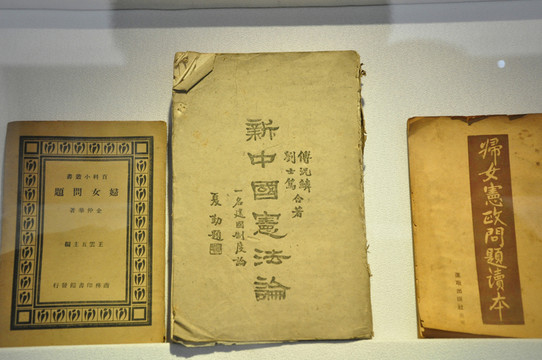 百科小叢書
婦女問題
金仲華著
王雲五主編
商務印書館發行
新中國憲法論
劉士篤
合著
一名建國制度論
夏勤題
婦女憲政問題讀本